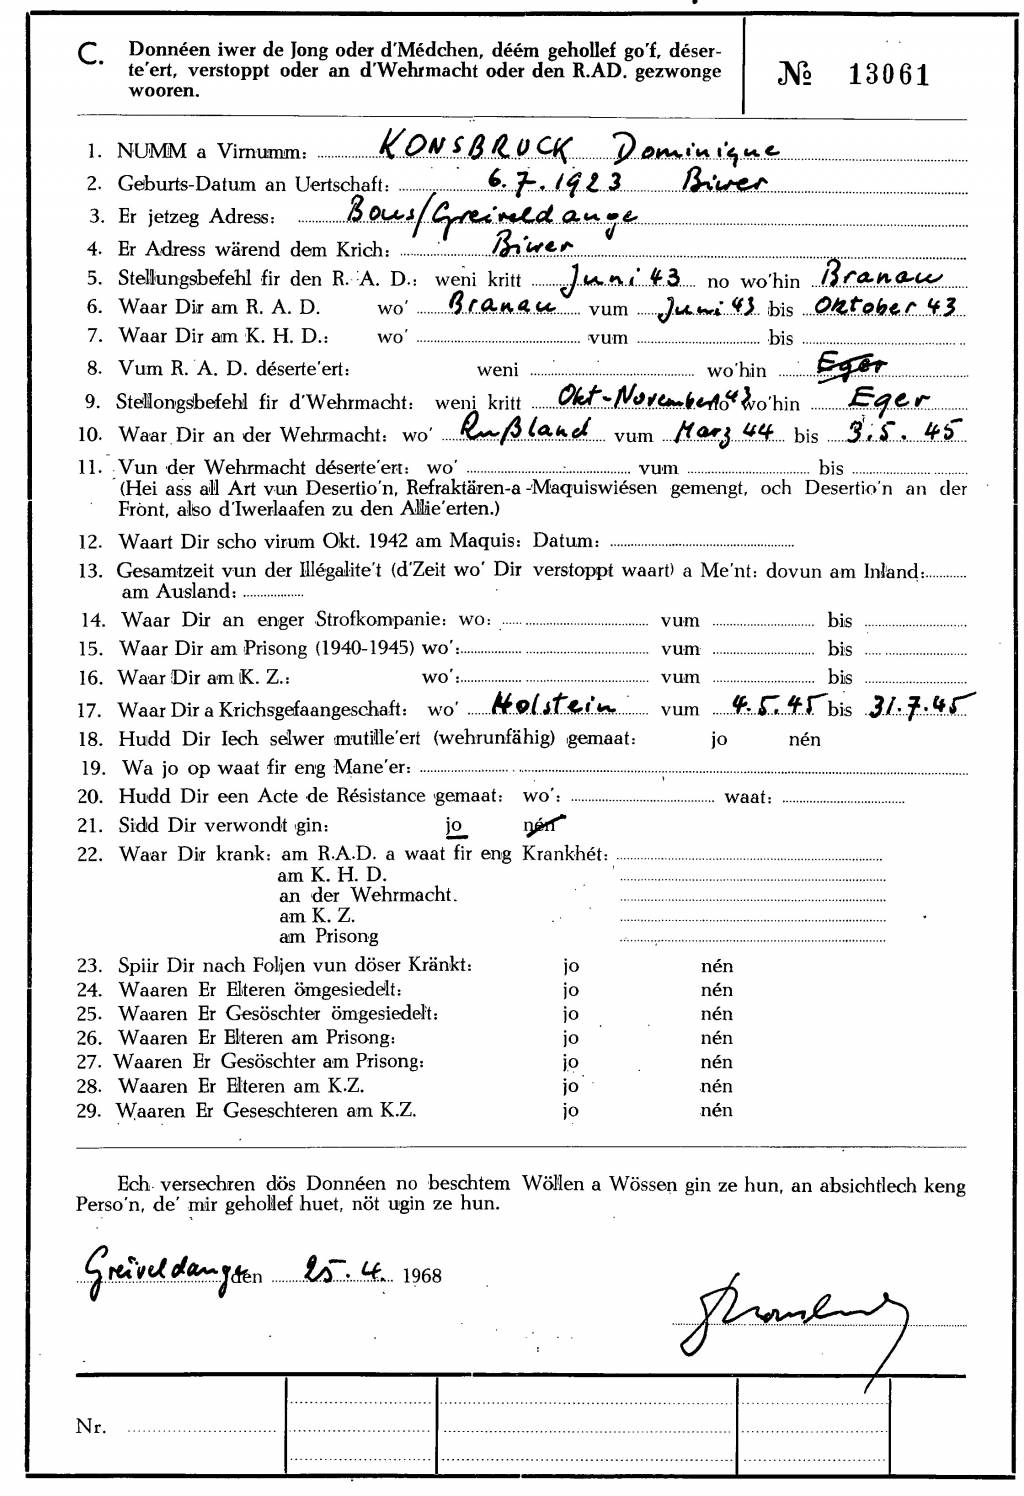 C. Donnéen iwer de Jong oder d'Médchen, déém gehollef go'f, déser-
te'ert, verstoppt oder an d'Wehrmacht oder den R.AD. gezwonge
wooren.
№ 13061
1. NUMM a Virnumm: KONSBRUCK Dominique
2. Geburts-Datum an Uertschaft: 6.7.1923 Biwer
3. Er jetzeg Adress: Bous/Greiveldange
4. Er Adress wärend dem Krich: Biwer
5. Stellungsbefehl fir den R. A. D.: weni kritt Juni 43 no wo'hin Branau
6. Waar Dir am R. A. D. wo' Branau vum Juni 43 bis Oktober 43
7. Waar Dir am K. H. D.: wo' vum bis
8. Vum R. A. D. déserte'ert: weni wo'hin Eger
9. Stellongsbefehl fir d'Wehrmacht: weni kritt Okt-November 43 no wo'hin Eger
10. Waar Dir an der Wehrmacht: wo' Rußland vum Marz 44 bis 3.5.45
11. Vun der Wehrmacht déserte'ert: wo' vum bis
(Hei ass all Art vun Desertio'n, Refraktären-a-Maquiswiésen gemengt, och Desertio'n an der
Front, also d'Iwerlaafen zu den Allie'erten.)
12. Waart Dir scho virum Okt. 1942 am Maquis: Datum:
13. Gesamtzeit vun der Illégalite't (d'Zeit wo' Dir verstoppt waart) a Me'nt: dovun am Inland:
am Ausland:
14. Waar Dir an enger Strofkompanie: wo: vum bis
15. Waar Dir am Prisong (1940-1945) wo': vum bis
16. Waar Dir am K. Z.: wo': vum bis
17. Waar Dir a Krichsgefaangeschaft: wo' Holstein vum 4.5.45 bis 31.7.45
18. Hudd Dir Iech selwer mutille'ert (wehrunfähig) gemaat: jo nén
19. Wa jo op waat fir eng Mane'er:
20. Hudd Dir een Acte de Résistance gemaat: wo': waat:
21. Sidd Dir verwondt gin: jo nén
22. Waar Dir krank: am R.A.D. a waat fir eng Krankhét:
am K. H. D.
an der Wehrmacht.
am K. Z.
am Prisong
23. Spiir Dir nach Foljen vun döser Kränkt: jo nén
24. Waaren Er Elteren ömgesiedelt: jo nén
25. Waaren Er Gesöschter ömgesiedelt: jo nén
26. Waaren Er Elteren am Prisong: jo nén
27. Waaren Er Gesöschter am Prisong: jo nén
28. Waaren Er Elteren am K.Z. jo nén
29. Waaren Er Geseschteren am K.Z. jo nén
Ech versechren dös Donnéen no beschtem Wöllen a Wössen gin ze hun, an absichtlech keng
Perso'n, de' mir gehollef huet, nöt ugin ze hun.
Greiveldange den 25.4. 1968
Nr.